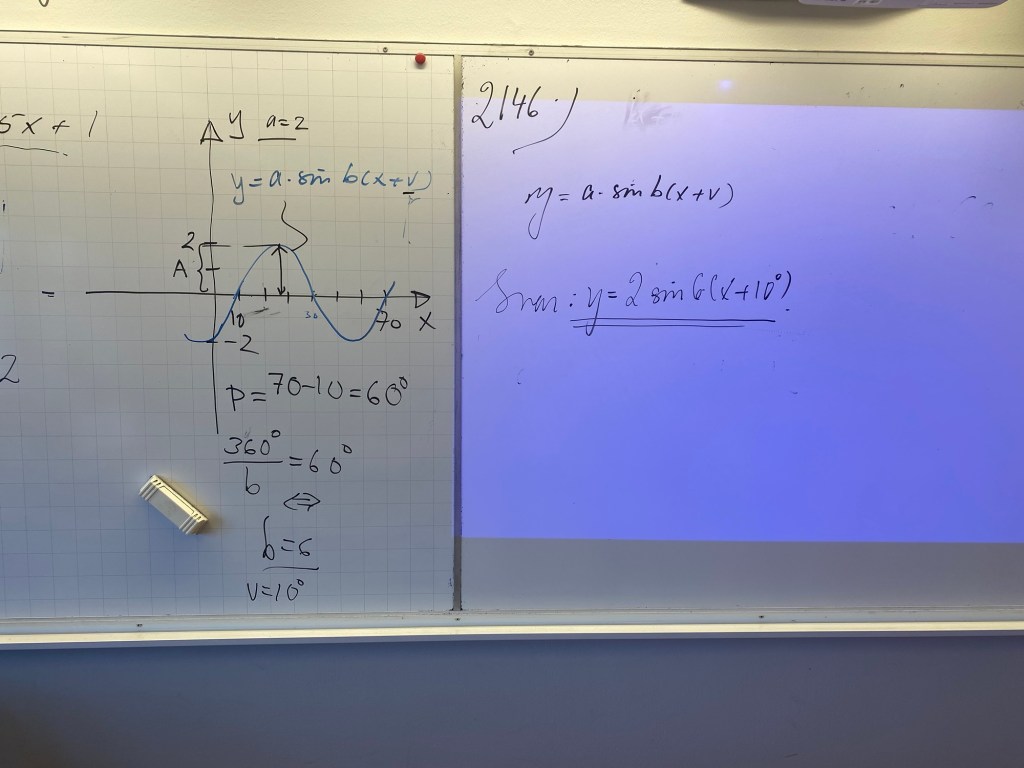 5x + 1
y a=2
y = a · sin b(x+v)
2
A
=
10
30
70 x
-2
2
P = 70-10 = 60°
360°/b = 60°
⇔
b=6
v=10°
2146
y = a · sin b(x+v)
Svar: y = 2 sin 6(x+10°).